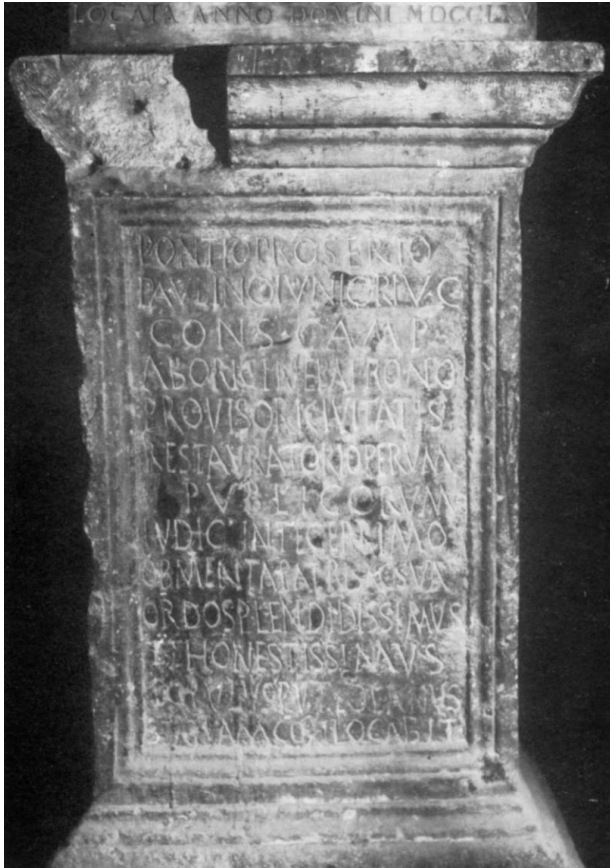 LOCATA ANNO DOMINI MDCCLXV
PONTIO PROSERIO
PAVLINO IVNIORI V·C
CONS·CAMP·
AB ORIGINE PATRONO
PROVISORI CIVITATIS
RESTAVRATORI OPERVM
PVBLICORVM
IVDICI INTEGERRIMO
OB MERITA PATRIAE SVA
ORDO SPLENDIDISSIMVS
ET HONESTISSIMVS
POPVLVS PVTEOLANVS
LOCABIT